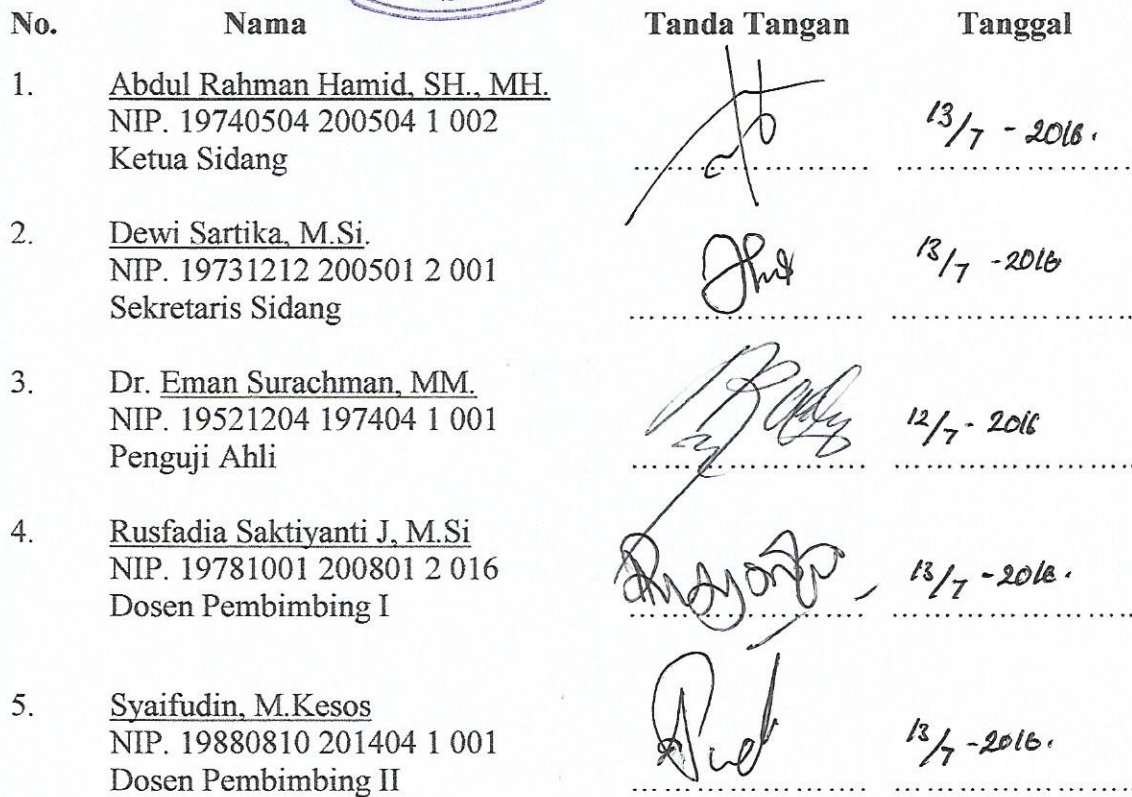 No. Nama Tanda Tangan Tanggal
1. Abdul Rahman Hamid, SH., MH.
NIP. 19740504 200504 1 002
Ketua Sidang
13/7 - 2016.
2. Dewi Sartika, M.Si.
NIP. 19731212 200501 2 001
Sekretaris Sidang
13/7 - 2016
3. Dr. Eman Surachman, MM.
NIP. 19521204 197404 1 001
Penguji Ahli
12/7 - 2016
4. Rusfadia Saktiyanti J, M.Si
NIP. 19781001 200801 2 016
Dosen Pembimbing I
13/7 - 2016.
5. Syaifudin, M.Kesos
NIP. 19880810 201404 1 001
Dosen Pembimbing II
13/7 - 2016.